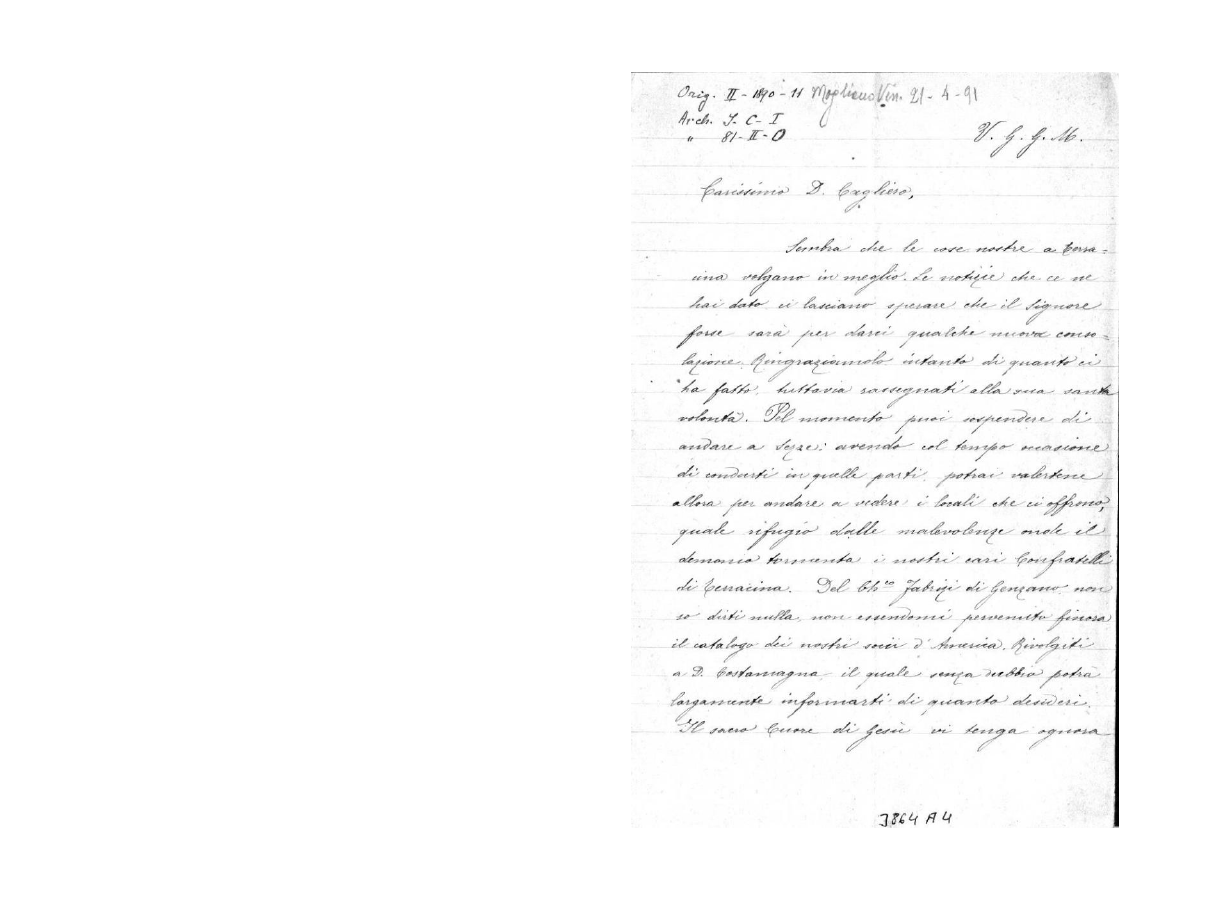 Orig. II - 1890 - 11 Mogliano Ven. 21 - 4 - 91
Arch. S - C - I
" 81 - II - O
V. G. G. M.
Carissimo D. Cagliero,
Sembra che le cose nostre a Terra=
cina volgano in meglio. Le notizie che ce ne
hai dato ci lasciano sperare che il Signore
forse sarà per darci qualche nuova conso=
lazione. Ringraziamolo intanto di quanto ci
ha fatto, tuttavia rassegnati alla sua santa
volontà. Pel momento puoi sospendere di
andare a Sezze: avendo col tempo occasione
di condurti in quelle parti, potrai valertene
allora per andare a vedere i locali che ci offrono,
quale rifugio dalle malevolenze onde il
demonio tormenta i nostri cari Confratelli
di Terracina. Del Ch.co Fabrizi di Genzano non
so dirti nulla, non essendomi pervenuto finora
il catalogo dei nostri socii d'America. Rivolgiti
a D. Costamagna il quale senza dubbio potrà
largamente informarti di quanto desideri.
Il sacro Cuore di Gesù vi tenga ognora
3864 A 4